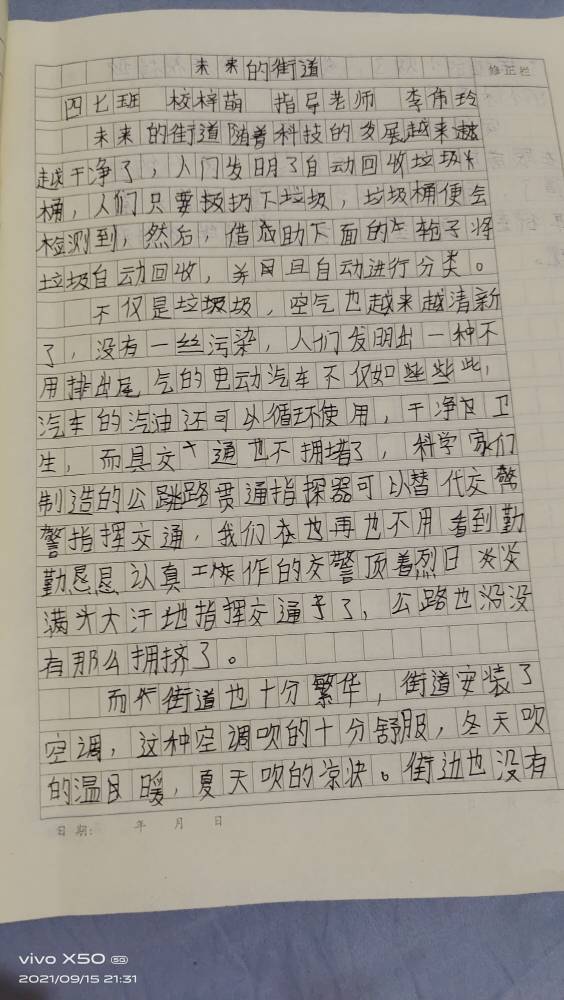 未来的街道
修正栏
四七班 校梓萌 指导老师 李伟玲
未来的街道随着科技的发展越来越
越干净了，人门发明了自动回收垃圾
桶，人们只要扔下垃圾，垃圾桶便会
检测到，然后，借助下面的轮子将
垃圾自动回收，并且自动进行分类。
不仅是垃圾圾，空气也越来越清新
了，没有一丝污染，人们发明出一种不
用排出尾气的电动汽车不仅如些些此，
汽车的汽油还可以循环使用，干净卫
生，而具交通也不拥堵了，科学家们
制造的公路贯通指挥器可以替代交警
警指挥交通，我们也再也不用看到勤
勤恳恳认真工作的交警顶着烈日炎炎
满头大汗地指挥交通了，公路也没
有那么拥挤了。
而街道也十分繁华，街道安装了
空调，这种空调吹的十分舒服，冬天吹
的温暖，夏天吹的凉快。街边也没有
日期： 年 月 日
vivo X50 5G
2021/09/15 21:31